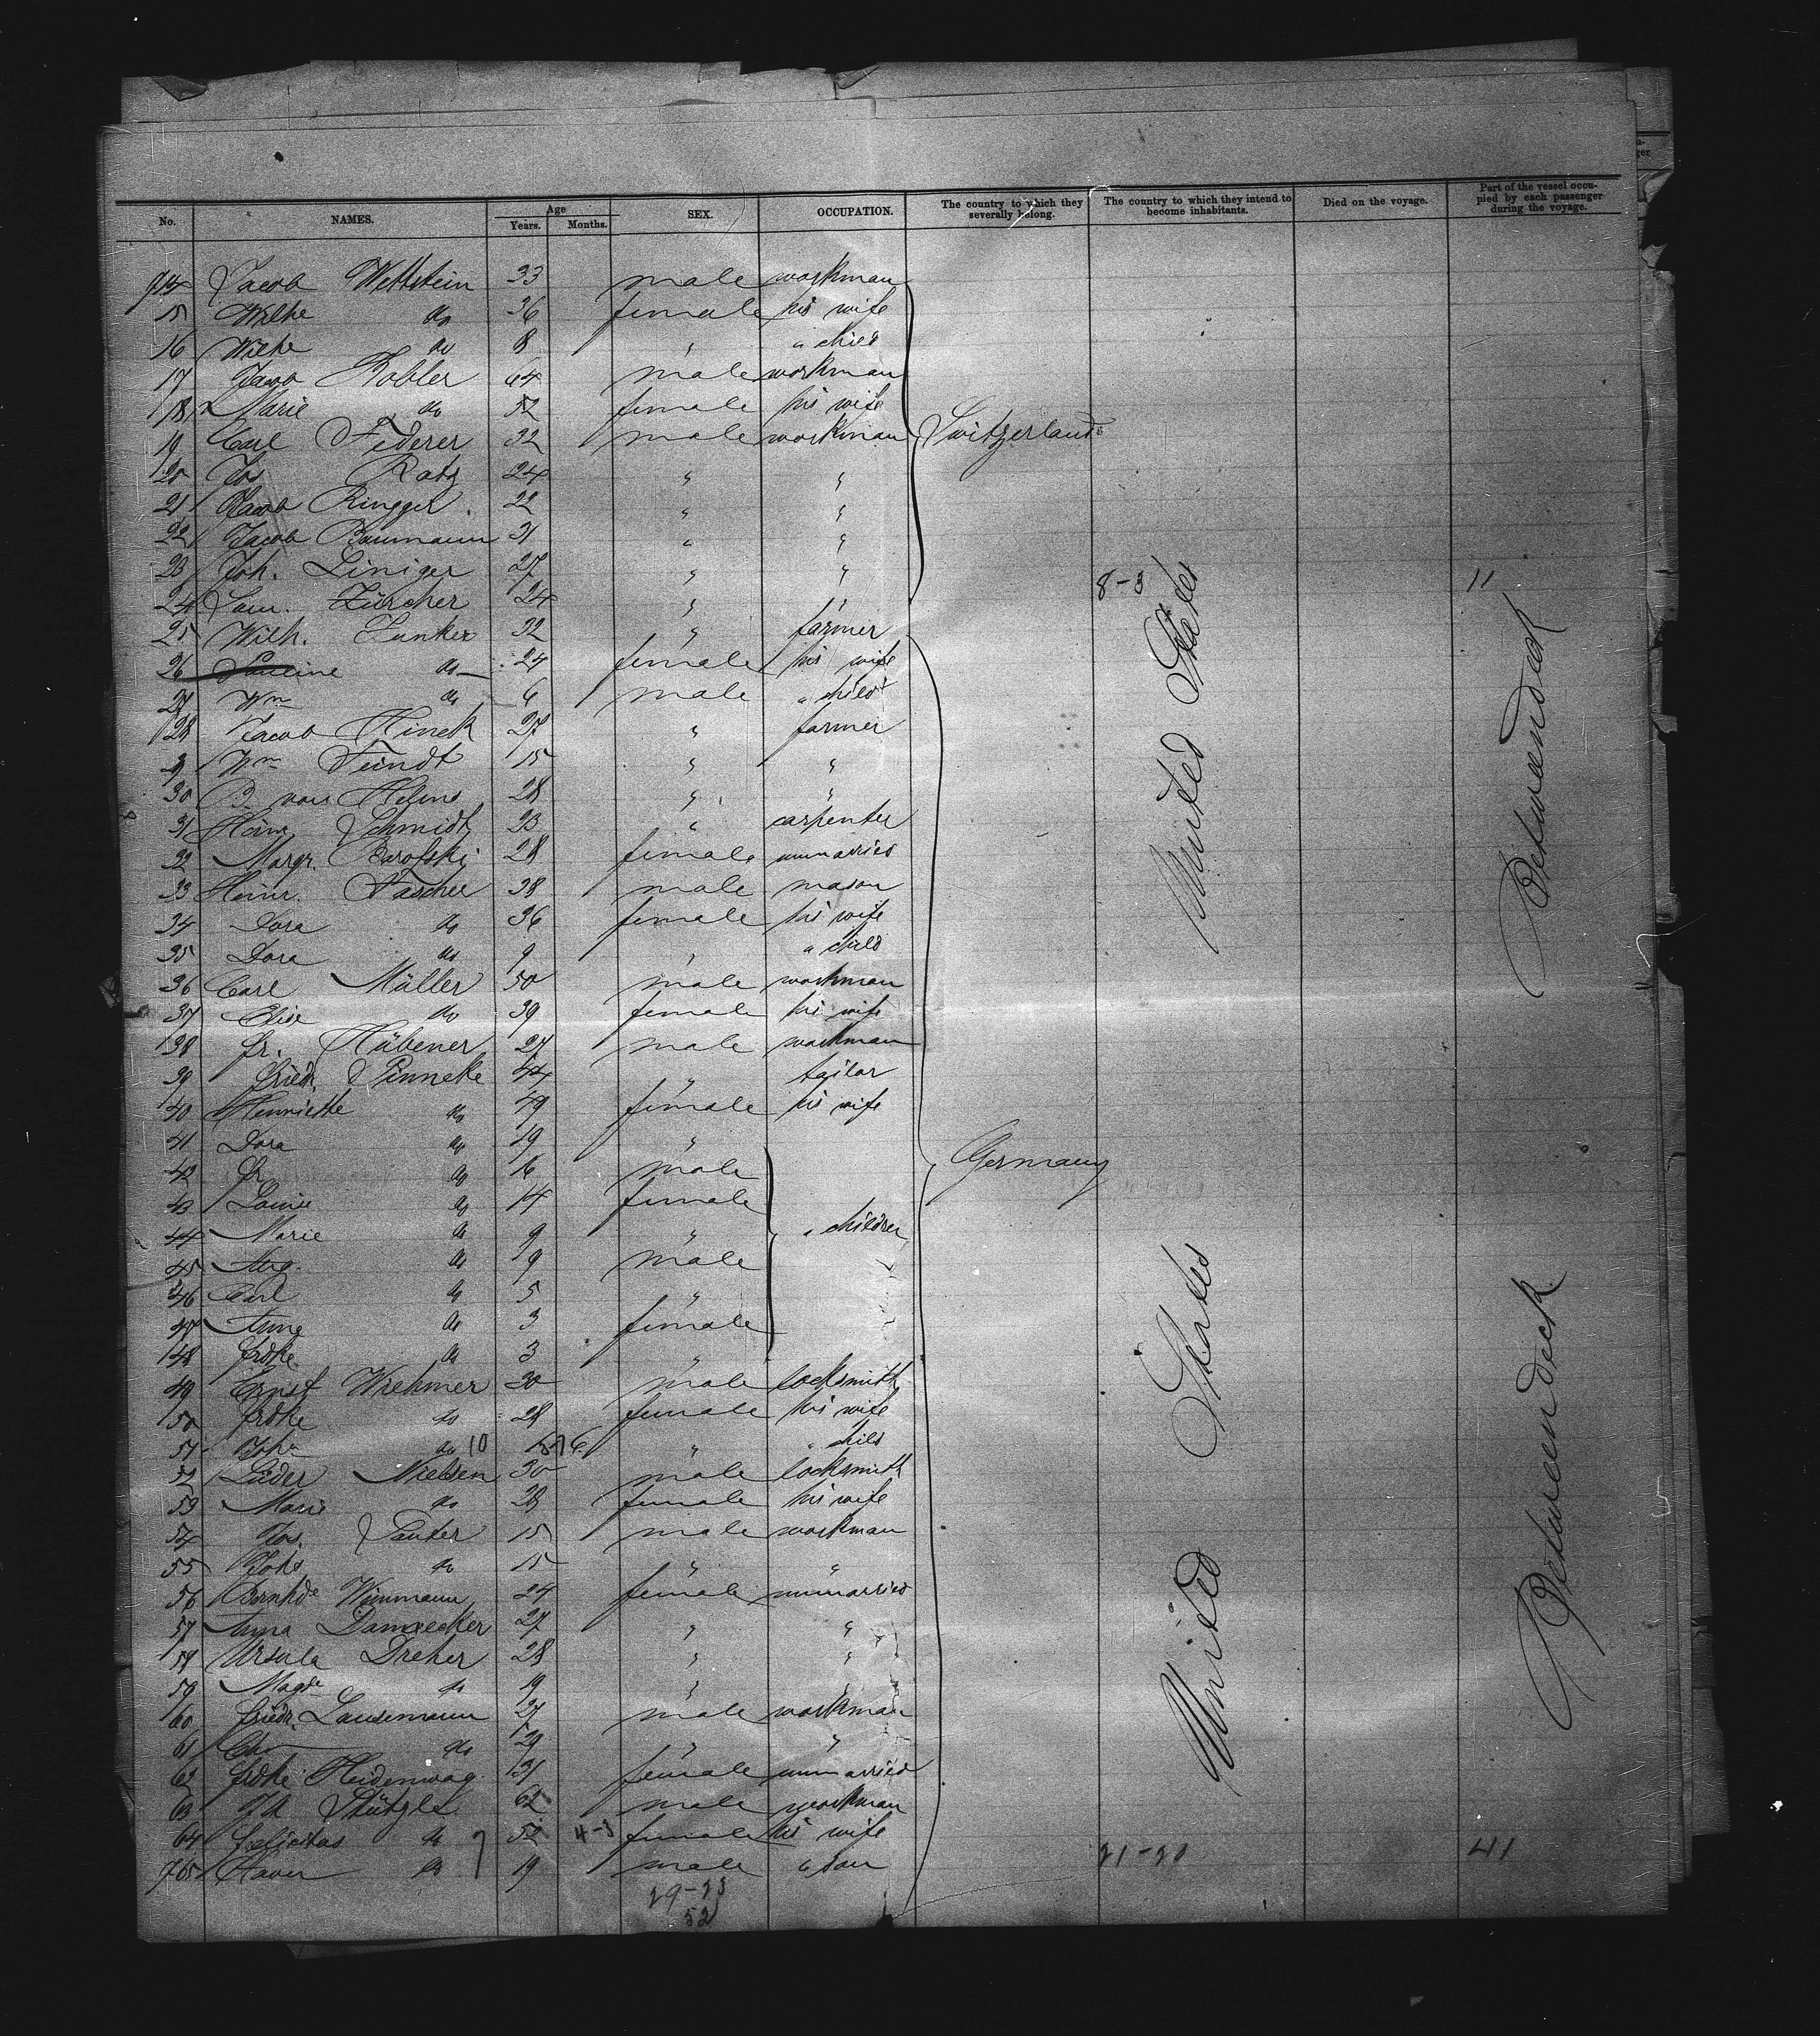 No. NAMES. Age Years. Months. SEX. OCCUPATION. The country to which they severally belong. The country to which they intend to become inhabitants. Died on the voyage. Part of the vessel occupied by each passenger during the voyage.
914 Jacob Wettstein 33 male workman
15 Wilhe do 36 female his wife
16 Wilhe do 8 " " child
17 Jacob Kobler 64 male workman
18 Marie do 52 female his wife
19 Carl Federer 32 male workman Switzerland
20 Jos Ratz 24 " "
21 Jacob Ringger 22 " "
22 Jacob Baumann 31 " "
23 Joh. Liniger 27 " "
24 Sam. Zürcher 24 " " 8-3 11
25 Wilh. Junker 32 " farmer
26 Pauline do 24 female his wife
27 Wm do 6 male " child
28 Jacob Hinck 27 " farmer
29 Wm Feindt 15 " "
30 B. von Helms 28 " "
31 Heinr Schmidt 23 " carpenter
32 Margr. Barofski 28 female unmarried
33 Heinr. Fascher 38 male mason
34 Dora do 36 female his wife
35 Dora do 9 " " child
36 Carl Müller 50 male workman
37 Elise do 39 female his wife
38 Fr. Hübener 27 male workman
39 Friedr. Pinneke 44 " tailor
40 Henriette do 49 female his wife
41 Dora do 19 "
42 Fr do 16 male Germany
43 Louise do 14 female
44 Marie do 9 " " children
45 Aug. do 9 male
46 Carl do 5 "
47 Anna do 3 female
48 Frdke do 3 "
49 Ernst Wiehmer 30 male locksmith
50 Frdke do 28 female his wife
51 Joh do 10 6 " " child
52 Lüder Nielsen 30 male locksmith
53 Marie do 28 female his wife
54 Jos. Sauter 15 male workman
55 Johs do 15 " "
56 Bernhde Wimmann 24 female unmarried
57 Anna Damaecker 27 " "
58 Ursula Dreher 28 " "
59 Magde do 19 " "
60 Friedr. Lausemann 27 male workman
61 Chr do 29 " "
62 Frdke Heidenwag 31 female unmarried
63 Stützle 62 male workman
64 Felicitas do 52 4-3 female his wife 21-20 41
965 Xaver do 19 male " son
29-23
52
United States
Betweendeck
United States
Betweendeck